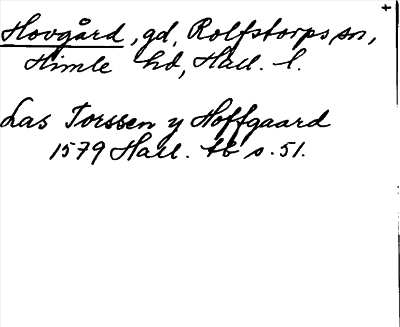 Hovgård, gd, Rolfstorps sn,
Himle hd, Hall. l.
Las Torssen y Hoffgaard
1579 Hall. tb s. 51.